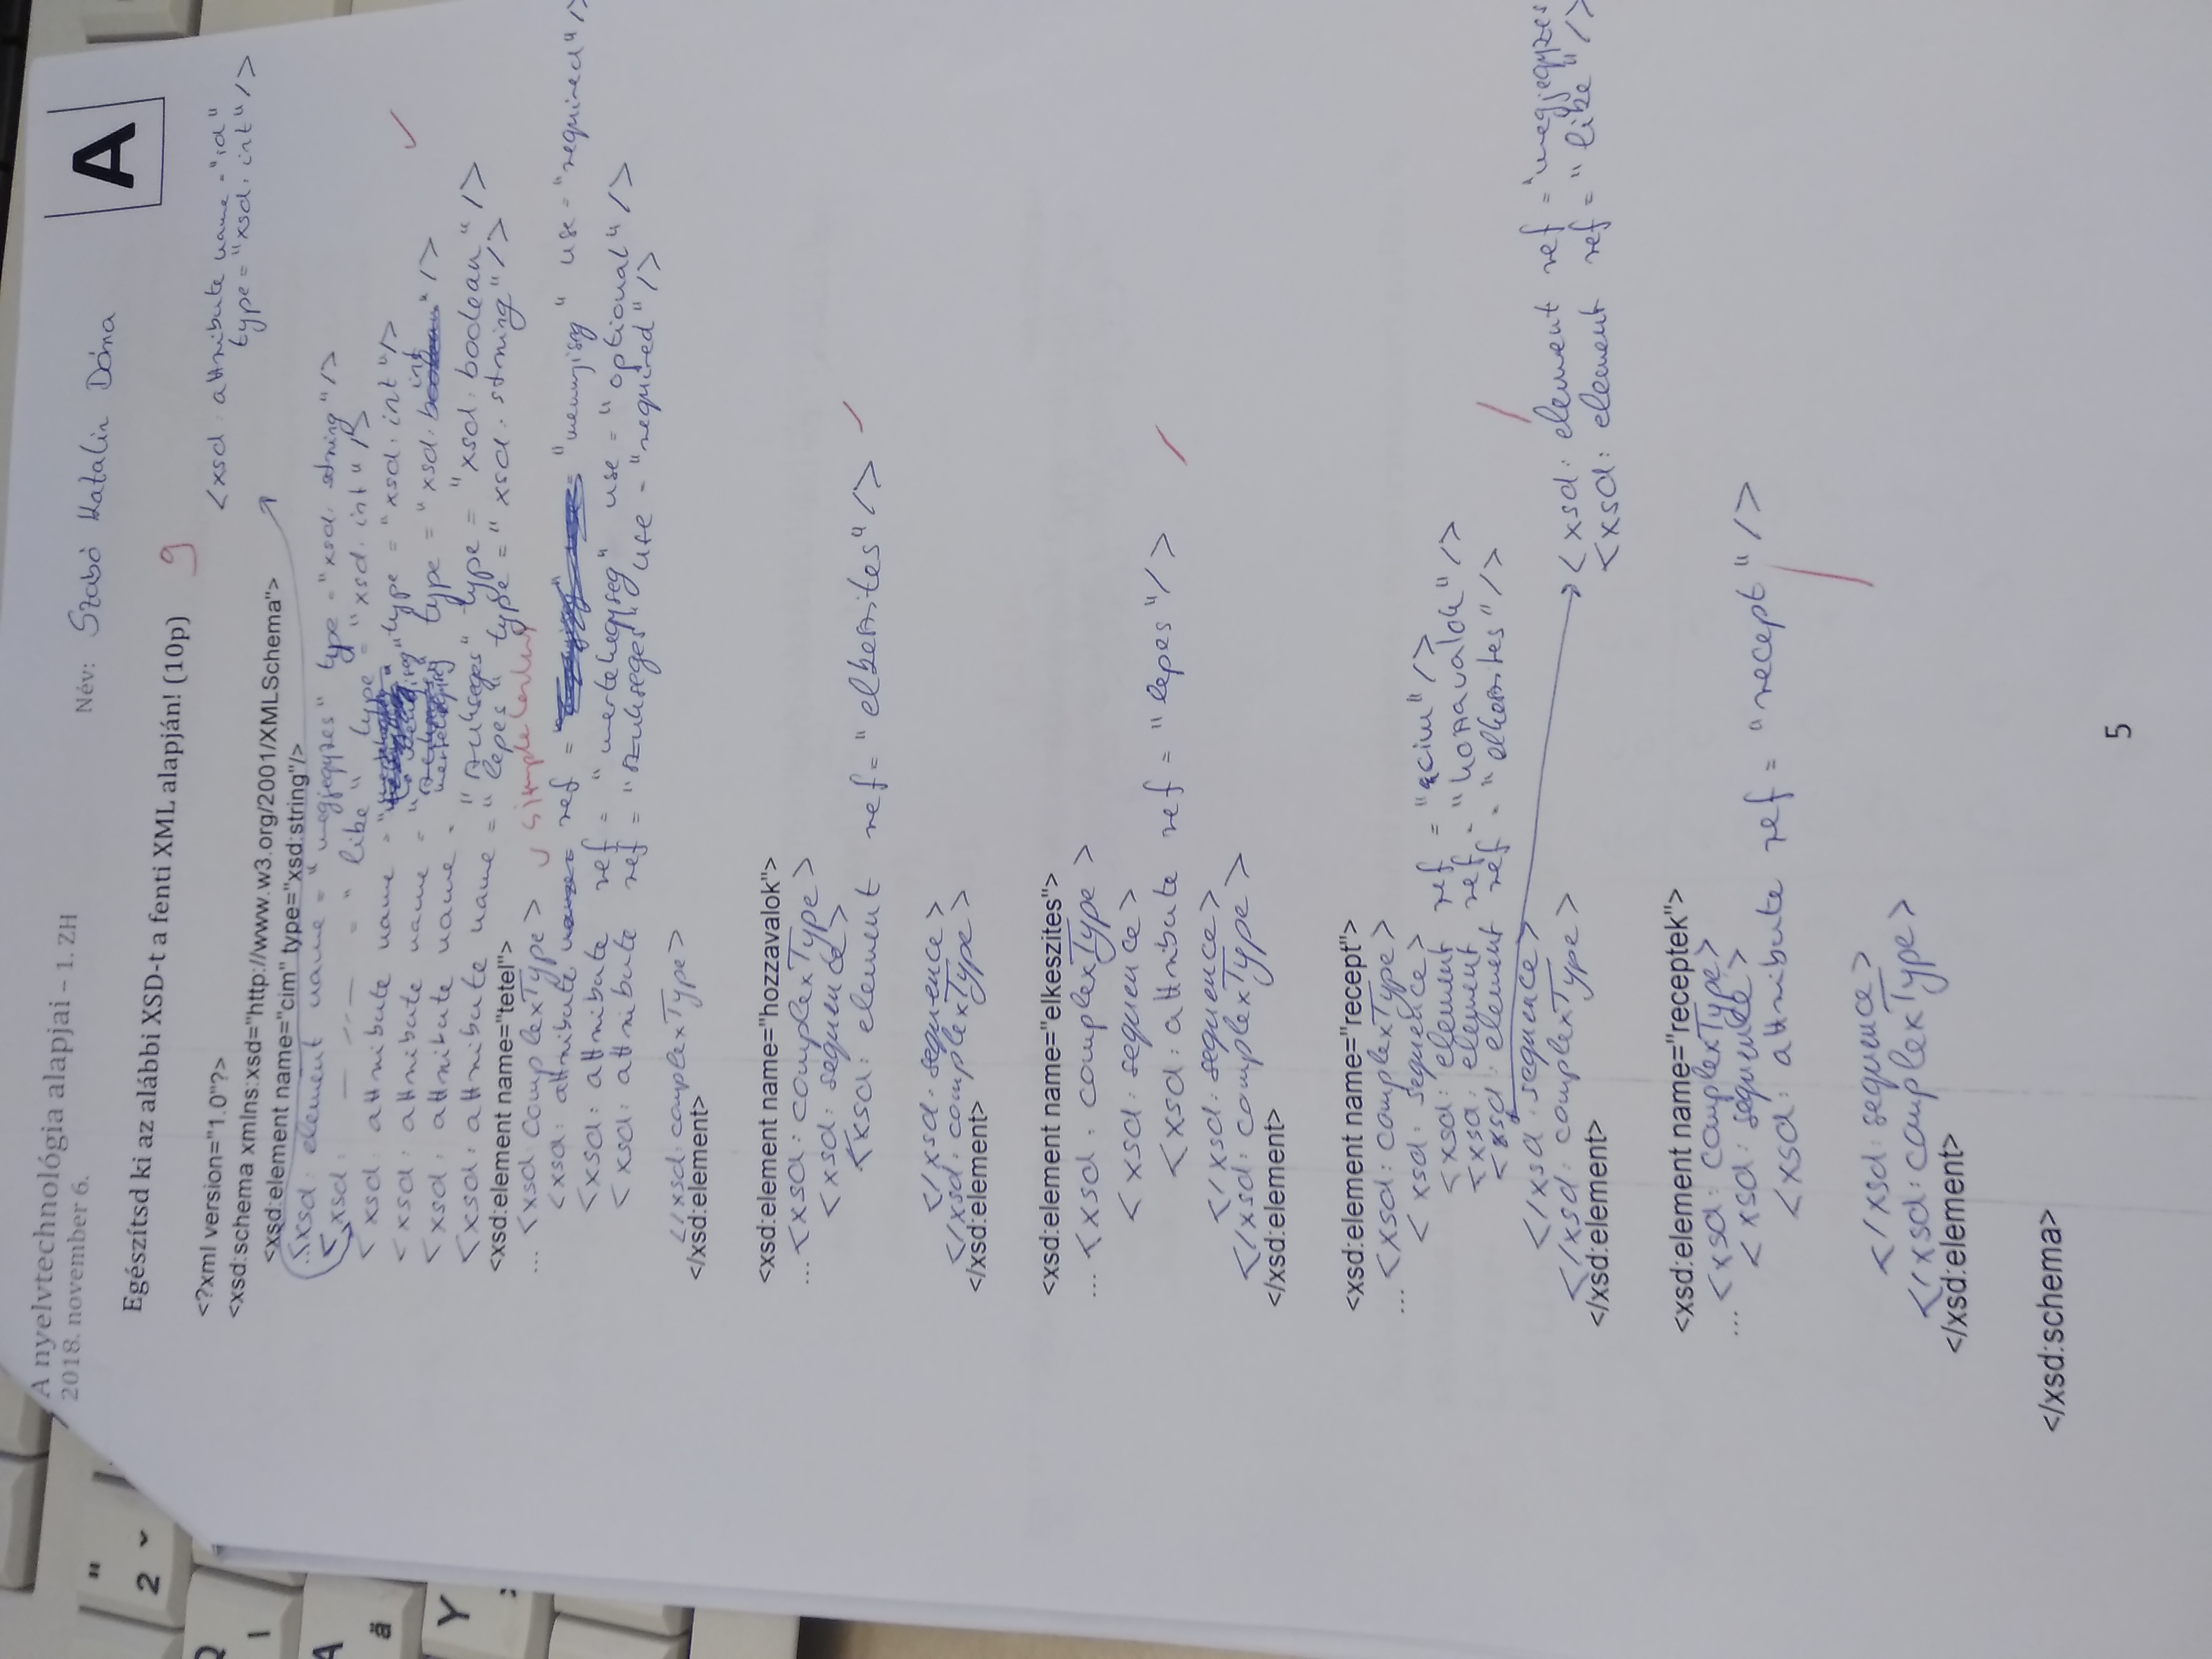 A nyelvtechnológia alapjai – 1. ZH
2018. november 6.
Név: Szabó Katalin Dóna
A
Egészítsd ki az alábbi XSD-t a fenti XML alapján! (10p)
9
<?xml version="1.0"?>
<xsd:schema xmlns:xsd="http://www.w3.org/2001/XMLSchema">
<xsd:attribute name="id"
type="xsd:int"/>
<xsd:element name="cim" type="xsd:string"/>
<xsd:element name="megjegyzes" type="xsd:string"/>
<xsd: — = "like" type="xsd:int"/>
<xsd:attribute name= type="xsd:int"/>
<xsd:attribute name="mertekegyseg" type="xsd:int"/>
<xsd:attribute name="szukseges" type="xsd:boolean"/>
<xsd:attribute name="lepes" type="xsd:string"/>
<xsd:element name="tetel">
... <xsd:complexType>
simple
<xsd:attribute ref="mennyiseg" use="required"/>
<xsd:attribute ref="mertekegyseg" use="optional"/>
<xsd:attribute ref="szukseges" use="required"/>
</xsd:complexType>
</xsd:element>
<xsd:element name="hozzavalok">
... <xsd:complexType>
<xsd:sequence>
<xsd:element ref="elkeszites"/>
</xsd:sequence>
</xsd:complexType>
</xsd:element>
<xsd:element name="elkeszites">
... <xsd:complexType>
<xsd:sequence>
<xsd:attribute ref="lepes"/>
</xsd:sequence>
</xsd:complexType>
</xsd:element>
<xsd:element name="recept">
... <xsd:complexType>
<xsd:sequence>
<xsd:element ref="cim"/>
<xsd:element ref="hozzavalok"/>
<xsd:element ref="elkeszites"/>
<xsd:element ref="megjegyzes
<xsd:element ref="like"/>
</xsd:sequence>
</xsd:complexType>
</xsd:element>
<xsd:element name="receptek">
... <xsd:complexType>
<xsd:sequence>
<xsd:attribute ref="recept"/>
</xsd:sequence>
</xsd:complexType>
</xsd:element>
</xsd:schema>
5
"
2
Q
A
ä
Y